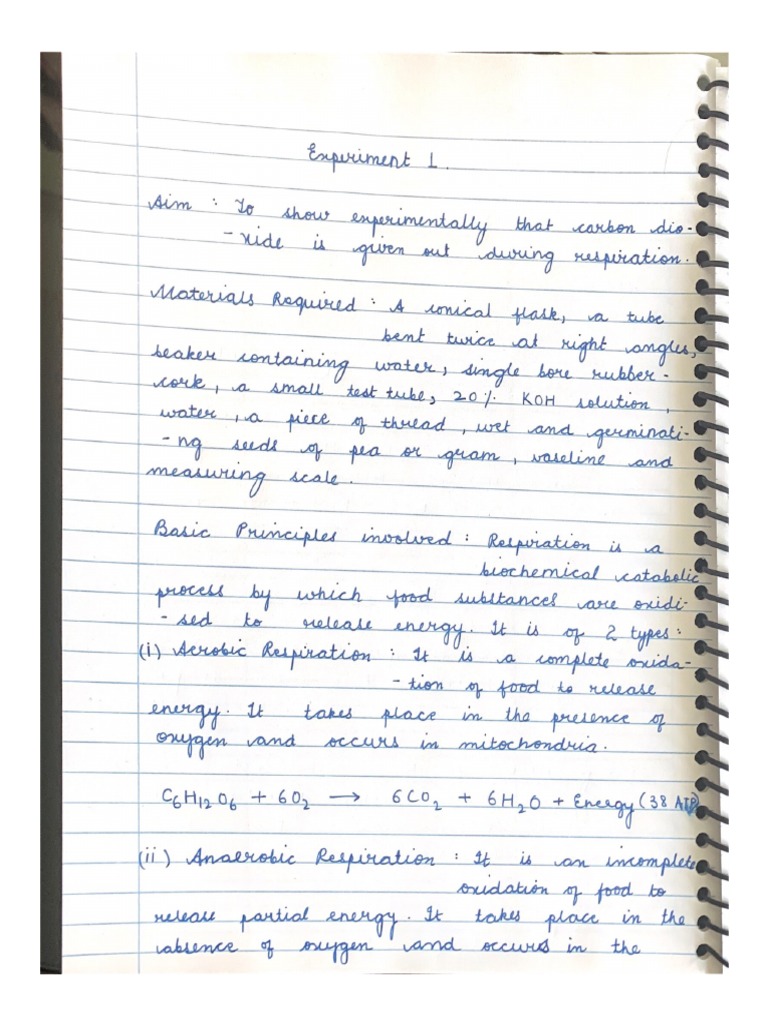 Experiment 1.
Aim : To show experimentally that carbon dio-
-xide is given out during respiration.
Materials Required : A conical flask, a tube
bent twice at right angles,
beaker containing water, single bore rubber-
cork, a small test tube, 20% KOH solution,
water, a piece of thread, wet and germinati-
-ng seeds of pea or gram, vaseline and
measuring scale.
Basic Principles involved : Respiration is a
biochemical catabolic
process by which food substances are oxidi-
-sed to release energy. It is of 2 types:
(i) Aerobic Respiration : It is a complete oxida-
-tion of food to release
energy. It takes place in the presence of
oxygen and occurs in mitochondria.
C₆H₁₂O₆ + 6O₂ → 6CO₂ + 6H₂O + Energy (38 ATP)
(ii) Anaerobic Respiration : It is an incomplete
oxidation of food to
release partial energy. It takes place in the
absence of oxygen and occurs in the